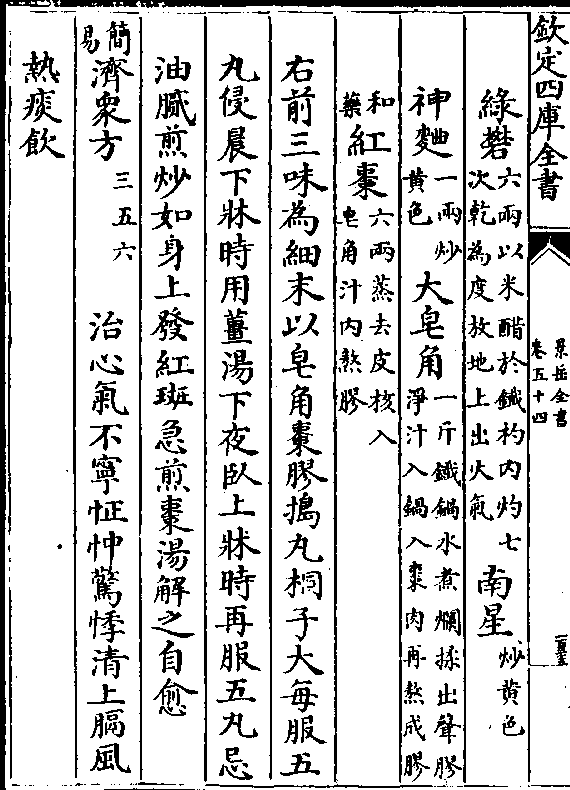 欽定四庫全書
景岳全書
卷五十四
綠礬六兩以米醋於鐵杓内灼七次乾為度放地上出火氣 南星炒黄色
神麯一兩炒黄色 大皂角一斤鐵鍋水煮爛揉出聲膠淨汁入鍋入棗肉再熬成膠
和藥 紅棗六兩蒸去皮核入皂角汁内熬膠
右前三味為細末以皂角棗膠搗丸桐子大每服五
丸侵晨下牀時用薑湯下夜臥上牀時再服五丸忌
油膩煎炒如身上發紅斑急煎棗湯解之自愈
簡易濟衆方三五六 治心氣不寧怔忡驚悸清上膈風
熱痰飲